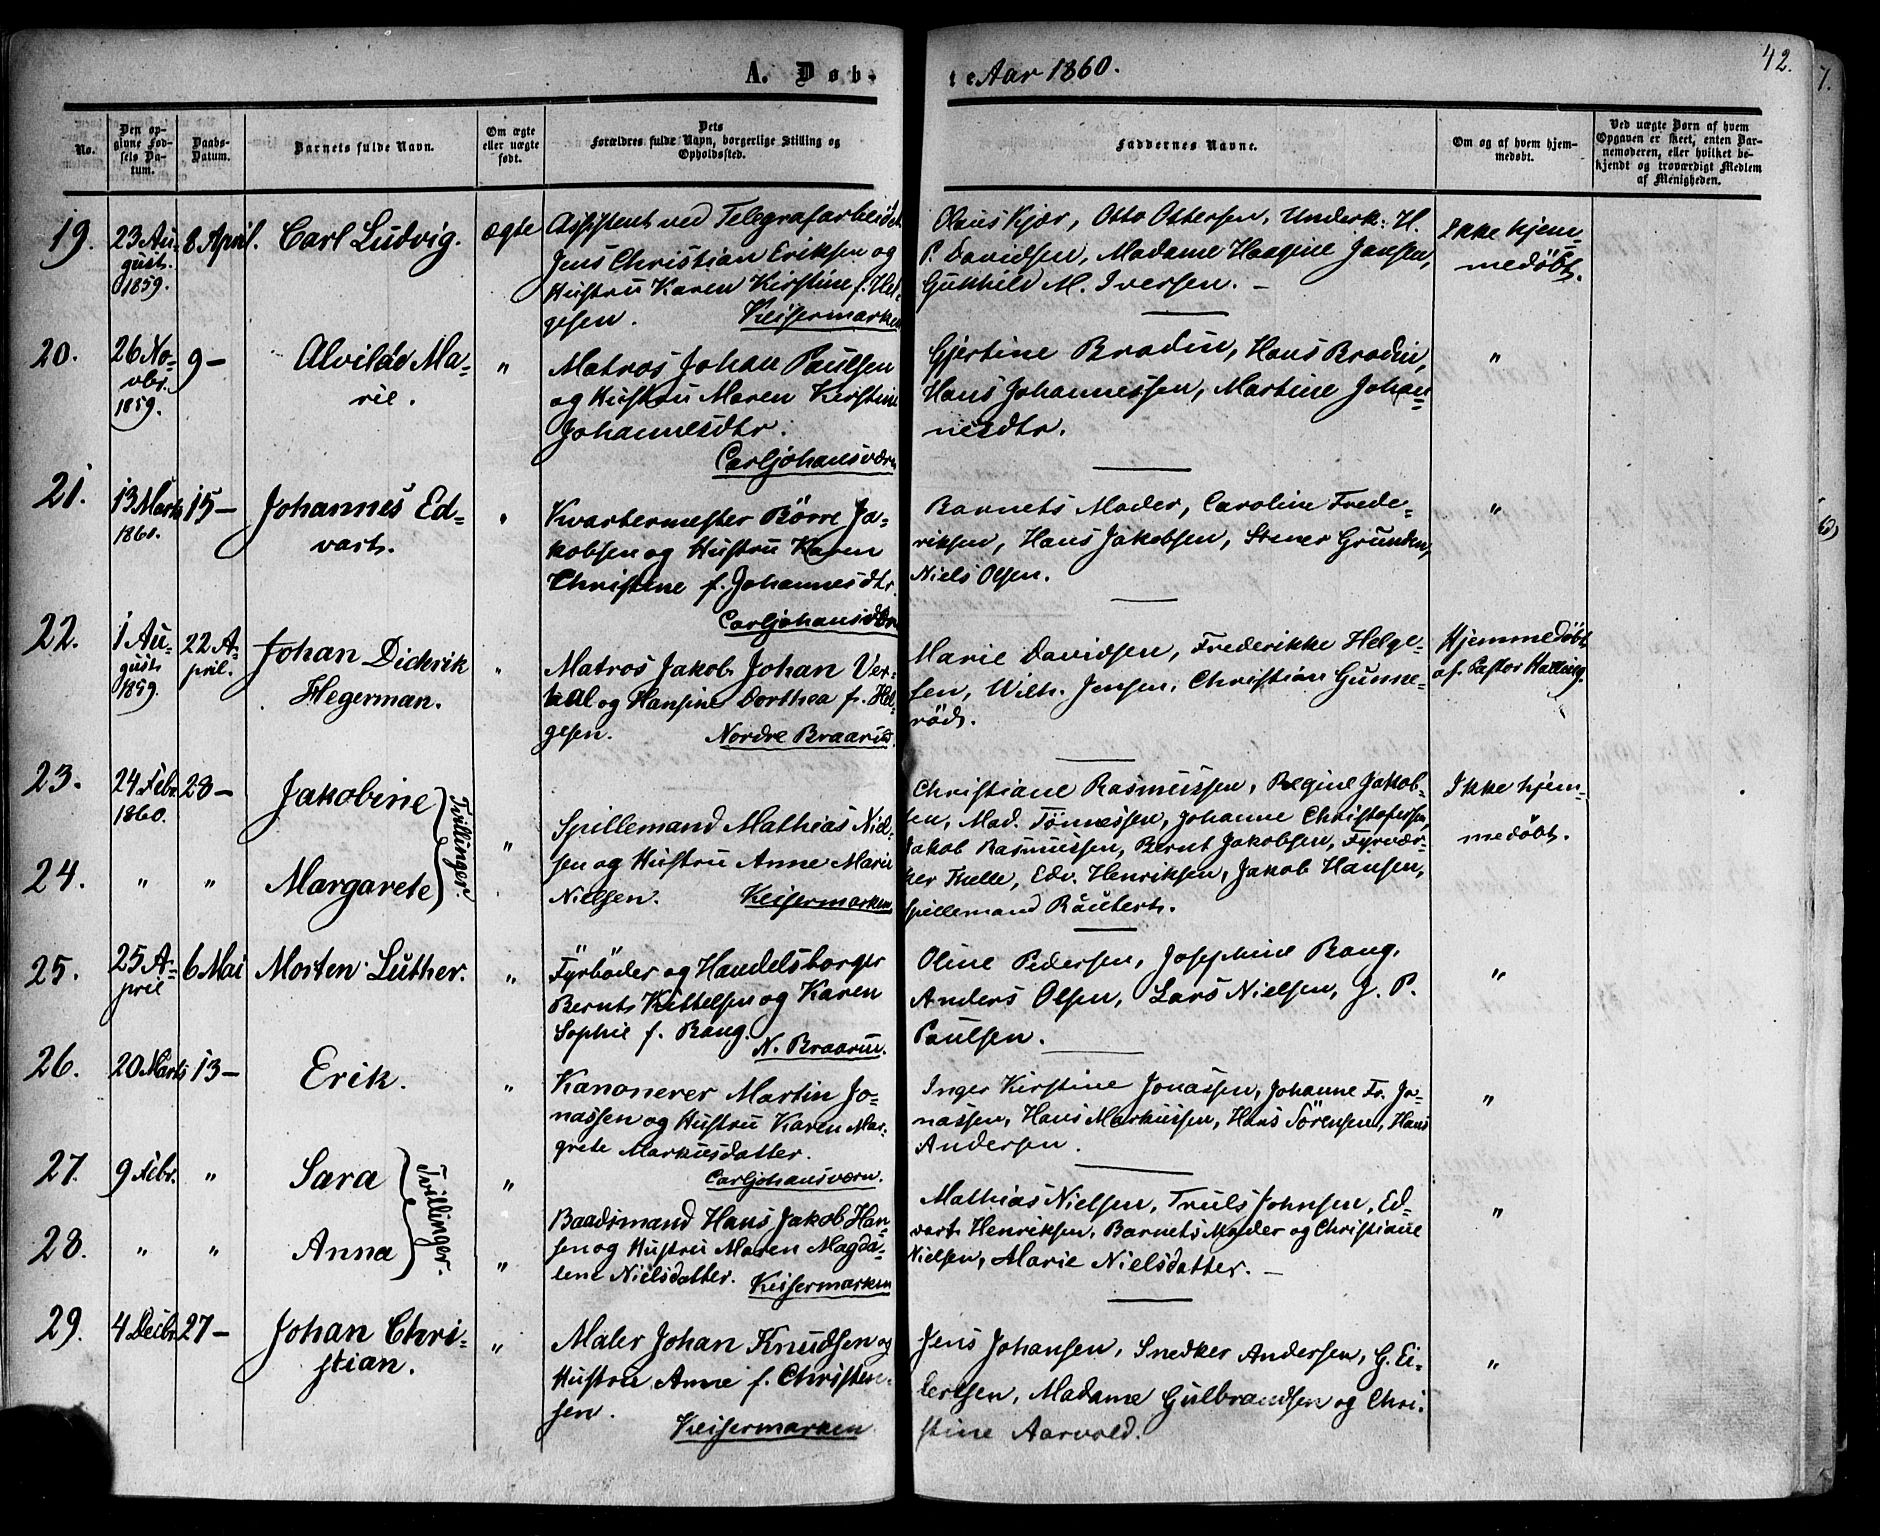 42.
A. Døb-
te Aar 1860.
No.
Den op-
givne Fød-
sels Da-
tum.
Daabs-
Datum.
Barnets fulde Navn.
Om ægte
eller uægte
født.
Dets
Forældres fulde Navn, borgerlige Stilling og
Opholdssted.
Faddernes Navne.
Om og af hvem hjem-
medøbt.
Ved uægte Børn af hvem
Opgaven er skeet, enten Bar-
nemoderen, eller hvilket be-
kjendt og troværdigt Medlem
af Menigheden.
19.
23 Au-
gust.
1859.
8 April.
Carl Ludvig.
ægte
Assistent ved Telegrafarbeidet
Jens Christian Eriksen og
Hustru Karen Kirstine f. Hel-
gesen.
Keisermarken
Claus Kjær, Otto Ottersen, Underk: H.
P. Davidsen, Madame Haagine Jansen,
Gunhild M. Iversen. –
Ikke hjem-
medøbt.
20.
26 No-
vbr.
1859.
9 –
Alvilde Ma-
rie.
"
Matros Johan Paulsen
og Hustru Maren Kirstine
Johannesdtr.
Carljohansværn
Gjertine Brodin, Hans Brodin,
Hans Johannessen, Martine Johan-
nesdtr.
"
21.
13 Marts
1860.
15 –
Johannes Ed-
vart.
"
Kvartermester Børre Ja-
kobsen og Hustru Karen
Christine f. Johannesdtr.
Carljohansværn
Barnets Moder, Caroline Frede-
riksen, Hans Jakobsen, Stener Grunden,
Niels Olsen.
"
22.
1 Au-
gust.
1859.
22 A-
pril.
Johan Didrik
Hegerman.
"
Matros Jakob Johan Ver-
dal og Hansine Dorthea f. Hel-
gesen.
Nordre Braarud.
Marie Davidsen, Frederikke Helge-
sen, Wilh. Jensen, Christian Gunne-
rød.
Hjemmedøbt
af Pastor Halling.
23.
24 Febr.
1860.
28 –
Jakobine
Tvillinger.
"
Spillemand Mathias Niel-
sen og Hustru Anne Marie
Nielsen.
Keisermarken
Christiane Rasmussen, Regine Jakob-
sen, Mad. Tønnessen, Johanne Christofersen,
Jakob Rasmussen, Bernt Jakobsen, Fyrvær-
ker Thelle, Edv. Henriksen, Jakob Hansen,
Spillemand Raubert.
Ikke hjem-
medøbt.
24.
"
"
Margarete
25.
25 A-
pril
6 Mai
Morten Luther.
"
Fyrbøder og Handelsborger
Bernt Kittelsen og Karen
Sophie f. Bang.
N. Braarud.
Oline Pedersen, Josephine Bang,
Anders Olsen, Lars Nielsen, J. P.
Paulsen.
"
26.
20 Marts
13 –
Erik.
"
Kanonerer Martin Jo-
nassen og Hustru Karen Mar-
grete Markusdatter.
Carljohansværn.
Inger Kirstine Jonassen, Johanne Fr. Jo-
nassen, Hans Markussen, Hans Sørensen, Hans
Andersen.
"
27.
9 Febr.
"
Sara
Tvillinger.
"
Baadsmand Hans Jakob Han-
sen og Hustru Maren Magda-
lene Nielsdatter.
Keisermarken
Mathias Nielsen, Truls Johnsen, Ed-
vart Henriksen, Barnets Moder og Christiane
Nielsen, Marie Nielsdatter. –
"
28.
"
"
Anna
"
29.
4 Decbr.
27 –
Johan Chri-
stian.
"
Maler Johan Knudsen og
Hustru Anne f. Christen-
sen.
Keisermarken
Jens Johansen, Snedker Andersen, G. Ei-
lertsen, Madame Gulbrandsen og Chri-
stine Aarvold.
"